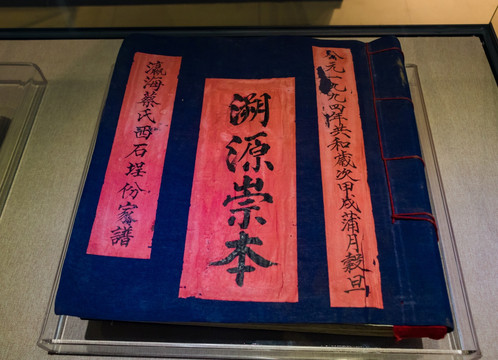 公元一九九四年共和歲次甲戌蒲月穀旦
溯源崇本
瀛海蔡氏西石埕份家譜